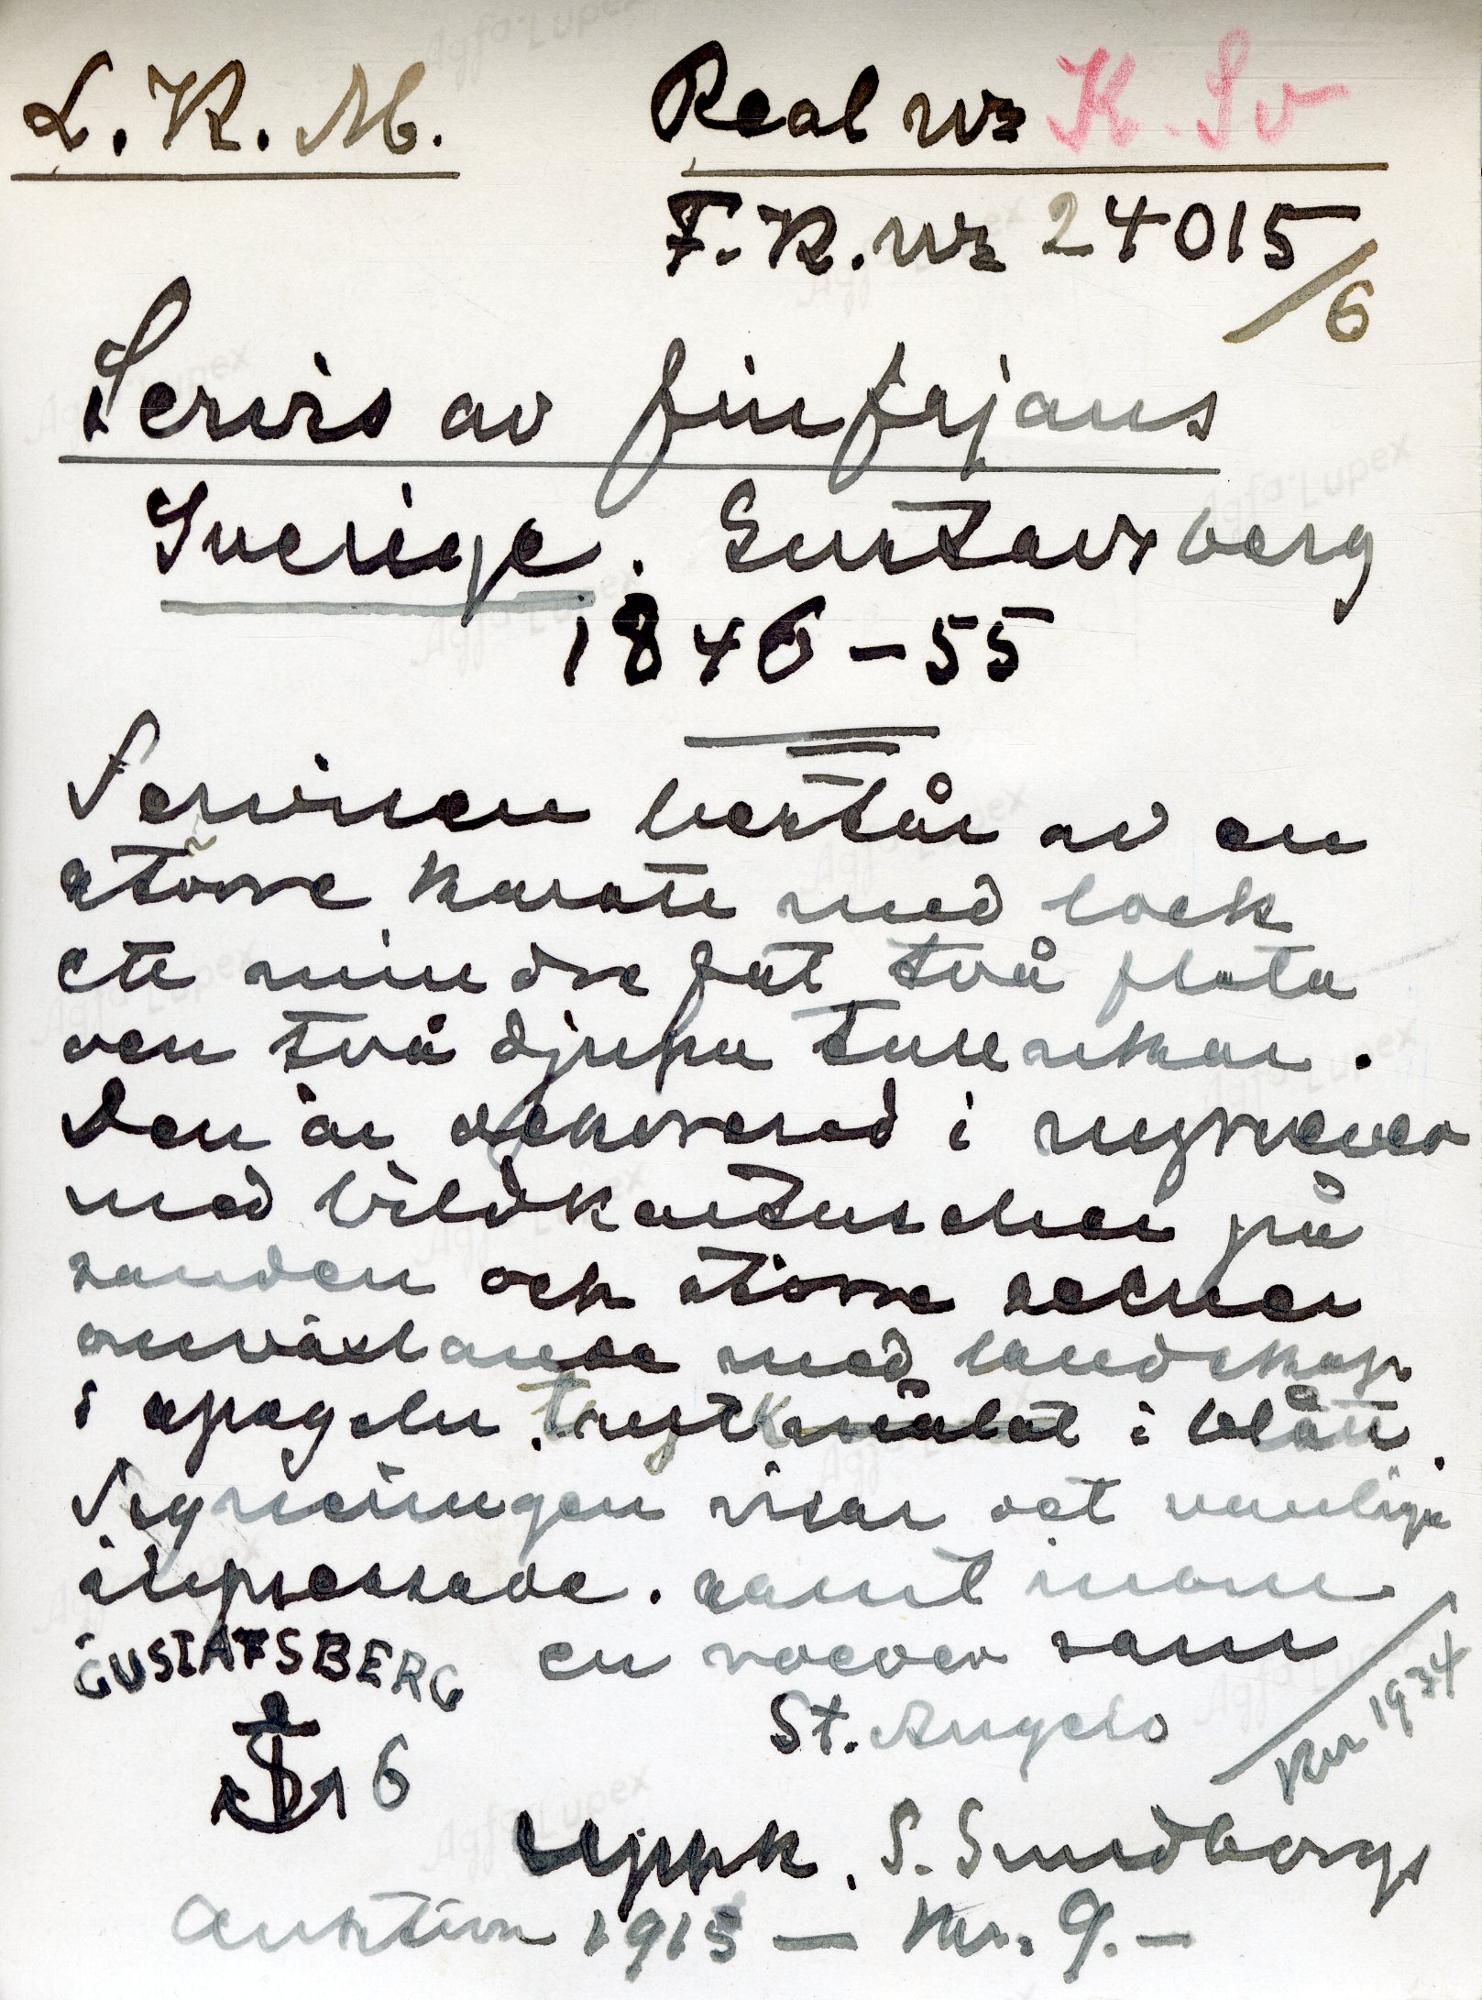 L.K.M. Real nr K.Sv
F.K.nr 24015/6
Servis av finfajans
Sverige. Gustavsberg
1846-55
Servisen består av en
större karott med lock
ett mindre fat två flata
och två djupa tallrikar.
Den är dekorerad i
med bildkartuscher på
randen och större scener
omväxlande med landskap
i spegeln. tryckt i blått.
Signeringen visar det vanliga
impressade. samt inom
GUSTAFSBERG en som
6 St. Angelo
kr 1934
Uppk. S. Sundborgs
Auktion 1915 — kr. 9.-